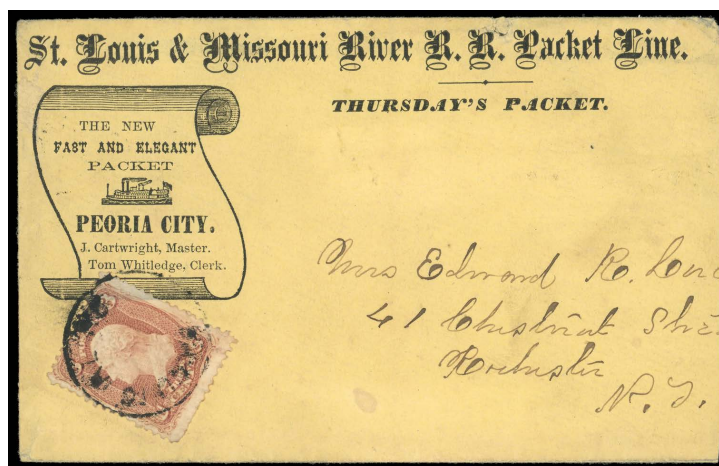 St. Louis & Missouri River R. R. Packet Line.
THURSDAY'S PACKET.
THE NEW
FAST AND ELEGANT
PACKET
PEORIA CITY.
J. Cartwright, Master.
Tom Whitledge, Clerk.
Mrs Edmond R.
41 Chestnut
Rochester
N. Y.